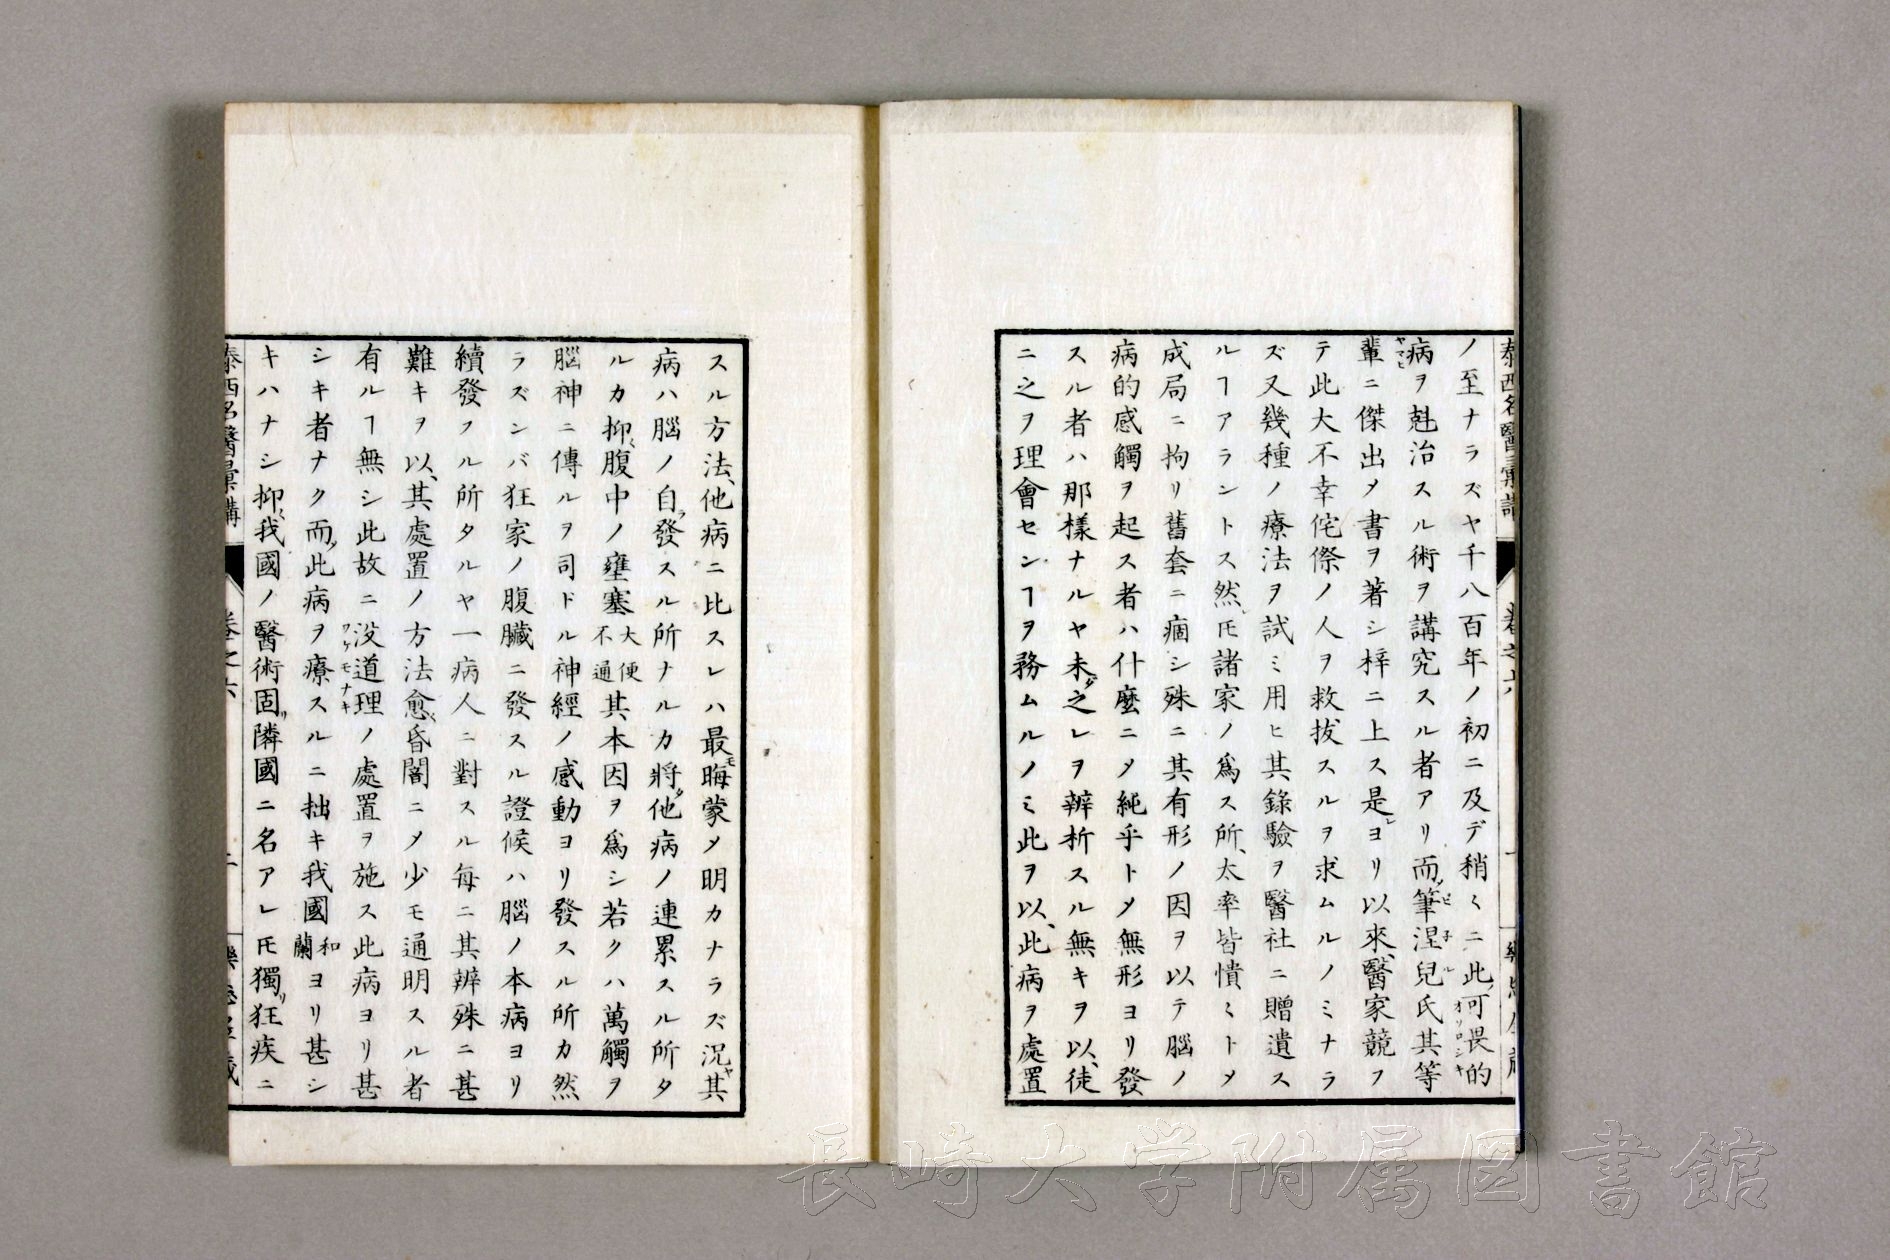 泰西名醫彙講
卷之六
ノ至ナラズヤ千八百年ノ初ニ及デ稍〻ニ此可畏的
病ヲ尅治スル術ヲ講究スル者アリ而筆涅兒氏其等
輩ニ傑出メ書ヲ著シ梓ニ上ス是ヨリ以來醫家競フ
テ此大不幸侘傺ノ人ヲ救拔スルヲ求ムルノミナラ
ズ又幾種ノ療法ヲ試ミ用ヒ其錄驗ヲ醫社ニ贈遺ス
ルヿアラントス然𪜈諸家ノ爲ス所太率皆憒〻トメ
成局ニ拘リ舊套ニ痼シ殊ニ其有形ノ因ヲ以テ腦ノ
病的感觸ヲ起ス者ハ什麼ニメ純乎トメ無形ヨリ發
スル者ハ那樣ナルヤ未之レヲ辨析スル無キヲ以徒
ニ之ヲ理會センヿヲ務ムルノミ此ヲ以此病ヲ處置
スル方法他病ニ比スレハ最晦蒙メ明カナラズ況其
病ハ腦ノ自發スル所ナルカ將他病ノ連累スル所タ
ルカ抑〻腹中ノ壅塞大便不通其本因ヲ爲シ若クハ萬觸ヲ
腦神ニ傳ルヲ司ドル神經ノ感動ヨリ發スル所カ然
ラズンバ狂家ノ腹臟ニ發スル證候ハ腦ノ本病ヨリ
續發フル所タルヤ一病人ニ對スル每ニ其辨殊ニ甚
難キヲ以其處置ノ方法愈〻昏闇ニメ少モ通明スル者
有ルヿ無シ此故ニ没道理ノ處置ヲ施ス此病ヨリ甚
シキ者ナク而此病ヲ療スルニ拙キ我國和蘭ヨリ甚シ
キハナシ抑〻我國ノ醫術固隣國ニ名アレ𪜈獨狂疾ニ
泰西名醫彙講
卷之六
二
長崎大学附属図書館